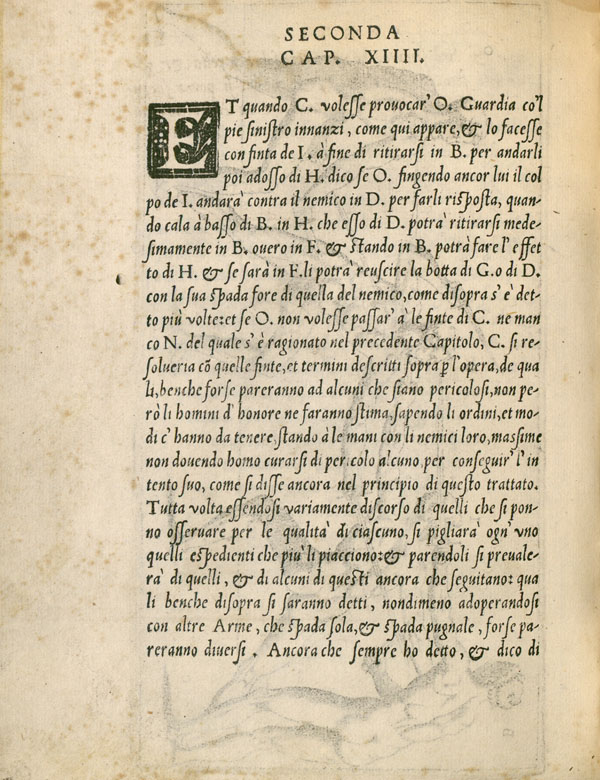 SECONDA
CAP. XIIII.
ET quando C. volesse provocar' O. Guardia co'l
pie sinistro innanzi, come qui appare, & lo facesse
con finta de I. à fine di ritirarsi in B. per andarli
poi adosso di H. dico se O. fingendo ancor lui il col
po de I. andarà contra il nemico in D. per farli risposta, quan-
do cala à basso di B. in H. che esso di D. potrà ritirarsi mede-
simamente in B. overo in F. & stando in B. potrà fare l'effet
to di H. & se sarà in F. li potrà reuscire la botta di G. o di D.
con la sua spada fore di quella del nemico, come disopra s'è det-
to più volte: et se O. non volesse passar' à le finte di C. ne man
co N. del quale s'è ragionato nel precedente Capitolo, C. si re-
solveria cō quelle finte, et termini descritti sopra ꝑ l'opera, de qua
li, benche forse pareranno ad alcuni che siano pericolosi, non pe-
rò li homini d'honore ne faranno stima, sapendo li ordini, et mo-
di c'hanno da tenere, stando à le mani con li nemici loro, massime
non dovendo homo curarsi di pericolo alcuno, per conseguir' l'in
tento suo, come si disse ancora nel principio di questo trattato.
Tutta volta essendosi variamente discorso di quelli che si pon-
no osservare per le qualità di ciascuno, si pigliarà ogn'vno
quelli espedienti che più li piacciono: & parendoli si prevale-
rà di quelli, & di alcuni di questi ancora che seguitano: qua
li benche disopra si saranno detti, nondimeno adoperandosi
con altre Arme, che spada sola, & spada pugnale, forse pa-
reranno diversi. Ancora che sempre ho detto, & dico di